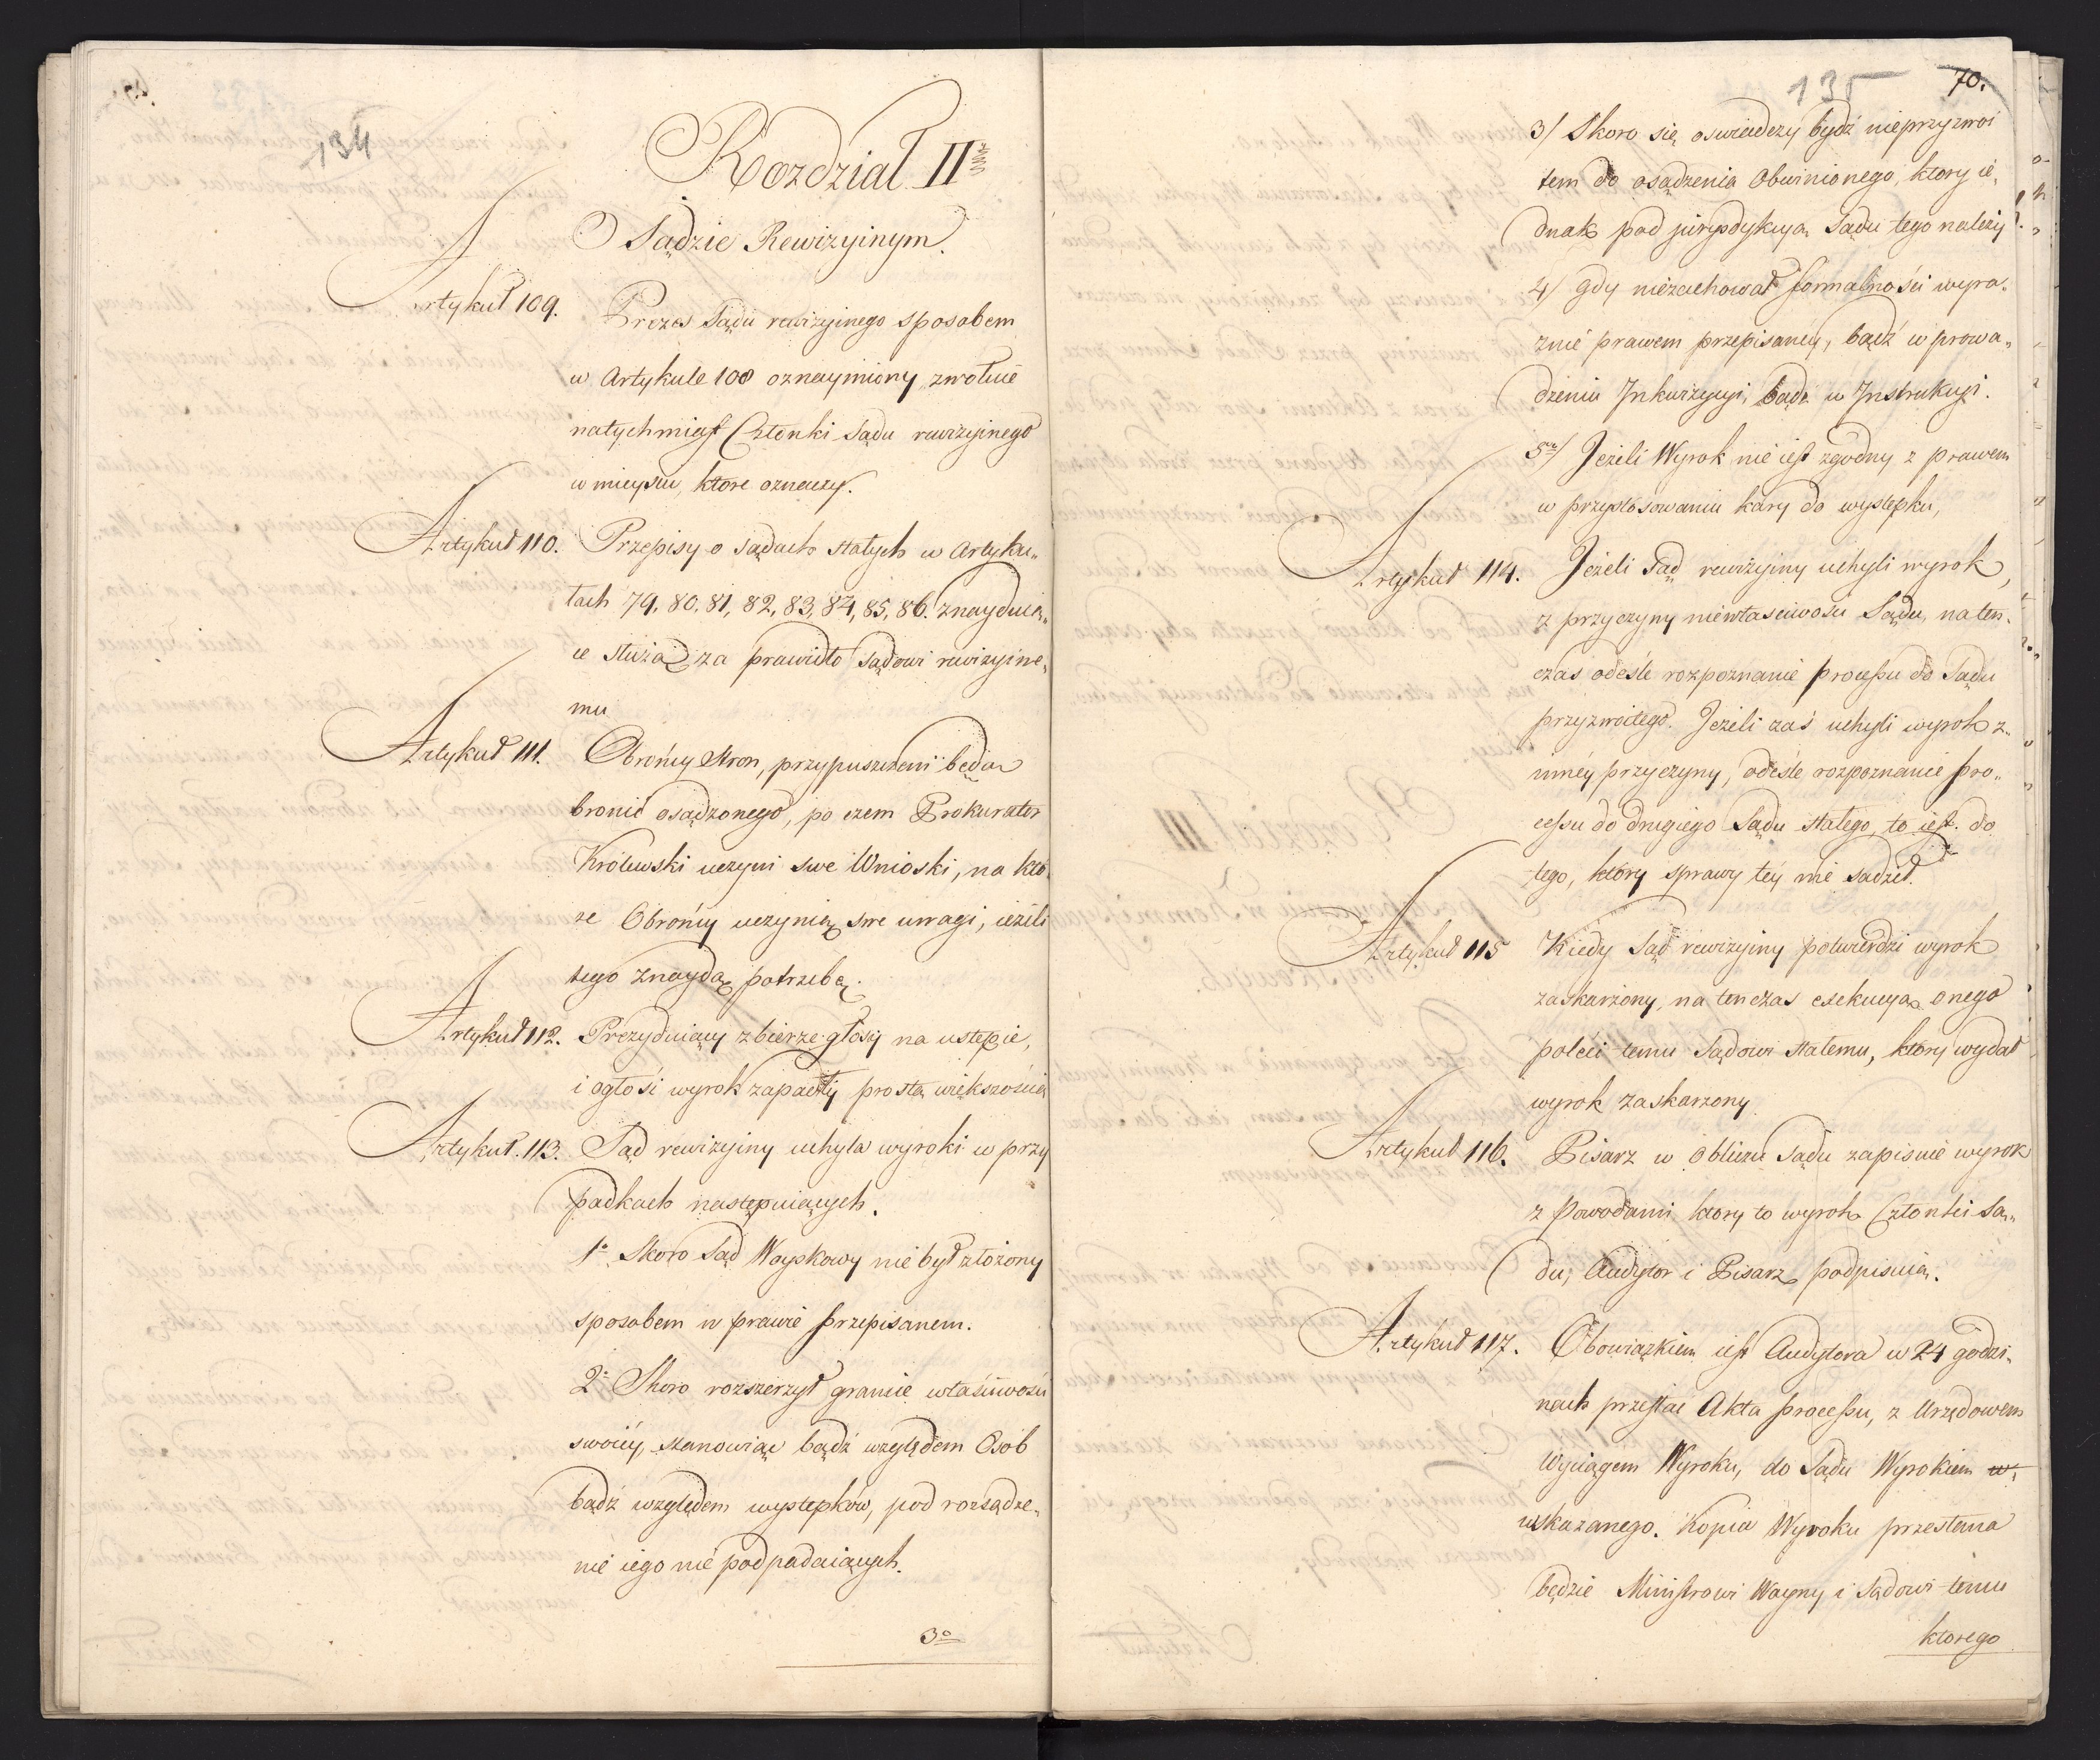 134
Rozdział II
O Sądzie Rewizyinym.
Artykuł 109.
Prezes Sądu rewizyinego sposobem
w Artykule 108 oznaymiony, zwołuie
natychmiast Członki Sądu rewizyinego
w mieyscu, ktore oznaczy.
Artykuł 110.
Przepisy o sądach stałych w Artyku„
łach 79, 80, 81, 82, 83, 84, 85, 86. znayduią„
ce służą za prawidło sądowi rewizyine„
mu
Artykuł 111.
Obrońcy stron, przypuszczeni będą
bronić osądzonego, po czem Prokurator
Królewski uczyni swe Wnioski, na któ„
re Obrońcy uczynią swe uwagi, ieżeli
tego znaydą potrzebę.
Artykuł 112.
Prezyduiący zbierze głosy na ustępie,
i ogłosi wyrok zapadły prostą większością
Artykuł. 113.
Sąd rewizyiny uchyla wyroki w przy
padkach następuiących.
1o Skoro Sąd Woyskowy nie był złożony
sposobem w prawie przepisanem.
2o Skoro rozszerzył granice właściwości
swoiey, stanowiąc bądź względem Osób
bądź względem występków, pod rozsądze„
nie iego nie podpadaiących.
3o
135
70.
3/ Skoro się oswiadczy bydź nieprzyzwoi
tem do osądzenia Obwinionego, ktory ie„
dnak pod jurysdykcyą Sądu tego należy
4/ gdy niezachował formalności wyra„
znie prawem przepisaney, bądź w prowa„
dzeniu Inkwizycyi, bądź w Instrukcyi.
5o/ Jeżeli Wyrok nie iest zgodny z prawem
w przystosowaniu kary do występku,
Artykuł 114.
Jeżeli Sąd rewizyiny uchyli wyrok,
z przyczyny niewłasciwości Sądu, na ten„
czas odeśle rozpoznanie processu do Sądu
przyzwoitego. Jeżeli zaś uchyli wyrok z„
inney przyczyny, odeśle rozpoznanie pro„
cessu do drugiego Sądu stałego, to iest. do
tego, który sprawy tey nie sądził.
Artykuł 115
Kiedy Sąd rewizyiny potwierdzi wyrok
zaskarżony, na tenczas exekucyą onego
poleci temu Sądowi stałemu, który wydał
wyrok zaskarzony.
Artykuł 116.
Pisarz w obliczu Sądu zapisuie wyrok
z powodami, ktory to wyrok Członki Są„
du, Audytor i Pisarz podpisuią.
Artykuł 117.
Obowiązkiem iest Audytora w 24 godzi„
nach przesłać Akta processu, z Urzędowem
Wyciągem Wyroku, do Sądu Wyrokiem w„
wskazanego. Kopia Wyroku przesłana
będzie Ministrowi Woyny i Sądowi temu
ktorego